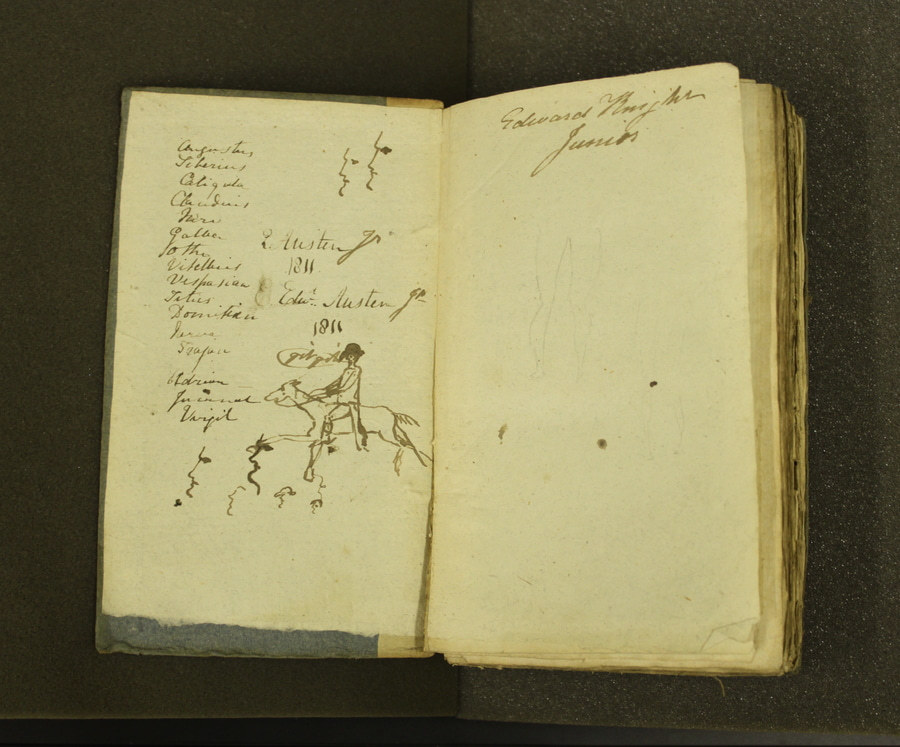 Augustus
Tiberius
Caligula
Claudius
Nero
Galba
Otho
Vitellius
Vespasian
Titus
Domitian
Nerva
Trajan
Adrian
Juvenal
Virgil
E Austen Jr
1811
Edwd. Austen Jr
1811
Edward Knight
Junior